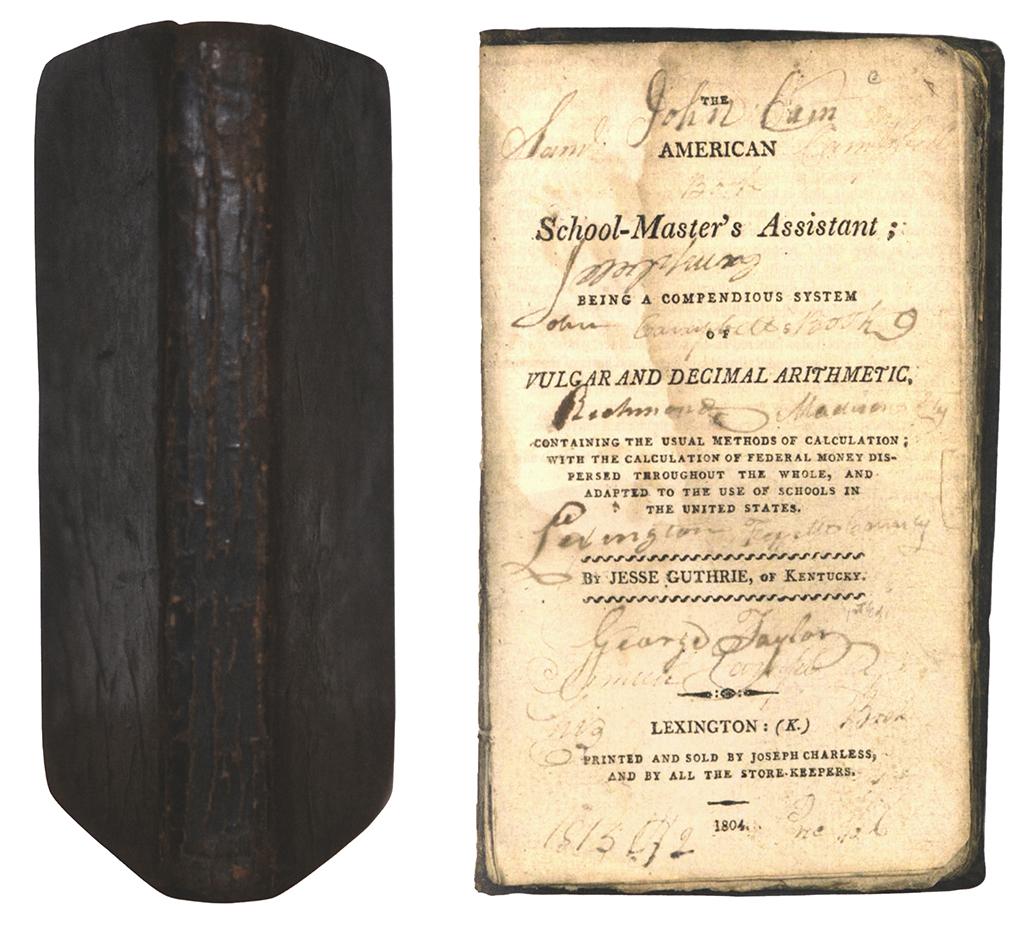 John Cam
THE
Sam.
AMERICAN
Book
School-Master's Assistant ;
Campbell
BEING A COMPENDIOUS SYSTEM
John Campbells Book
OF
VULGAR AND DECIMAL ARITHMETIC,
Richmond Madison
CONTAINING THE USUAL METHODS OF CALCULATION ;
WITH THE CALCULATION OF FEDERAL MONEY DIS-
PERSED THROUGHOUT THE WHOLE, AND
ADAPTED TO THE USE OF SCHOOLS IN
THE UNITED STATES.
Lexington County
By JESSE GUTHRIE, OF KENTUCKY.
George Taylor
LEXINGTON : (K.)
Book
PRINTED AND SOLD BY JOSEPH CHARLESS,
AND BY ALL THE STORE-KEEPERS.
1804.
1815